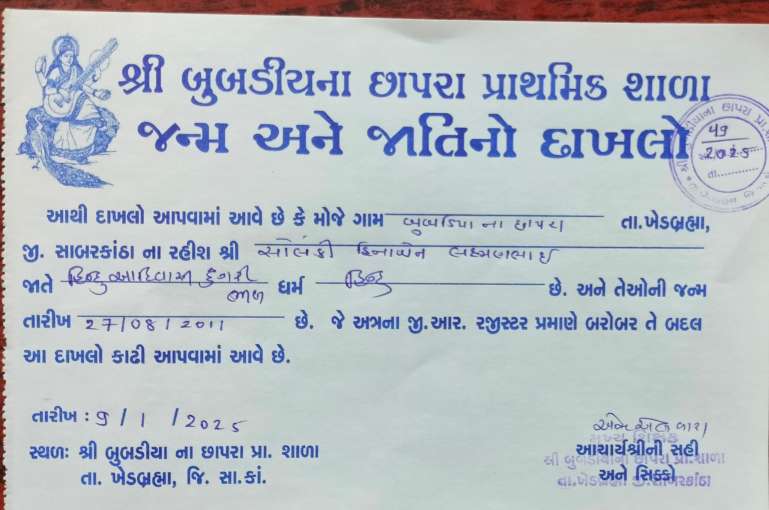 શ્રી બુબડીયના છાપરા પ્રાથમિક શાળા
જન્મ અને જાતિનો દાખલો
49
2025
તા..............
આથી દાખલો આપવામાં આવે છે કે મોજે ગામ બુબડિયા ના છાપરા તા.ખેડબ્રહ્મા,
જી. સાબરકાંઠા ના રહીશ શ્રી સોલંકી હિનાબેન લક્ષ્મણભાઈ
જાતે હિન્દુ આદિવાસી ડુંગરી
ભીલ ધર્મ હિન્દુ છે. અને તેઓની જન્મ
તારીખ 27/08/2011 છે. જે અત્રના જી.આર. રજીસ્ટર પ્રમાણે બરોબર તે બદલ
આ દાખલો કાઢી આપવામાં આવે છે.
તારીખ : 9/1/2025
સ્થળઃ શ્રી બુબડીયા ના છાપરા પ્રા. શાળા
તા. ખેડબ્રહ્મા, જિ. સા.કાં.
મુખ્ય શિક્ષક
આચાર્યશ્રીની સહી
શ્રી બુબડીયાના છાપરા પ્રા.શાળા
અને સિક્કો
તા.ખેડબ્રહ્મા જી.સાબરકાંઠા